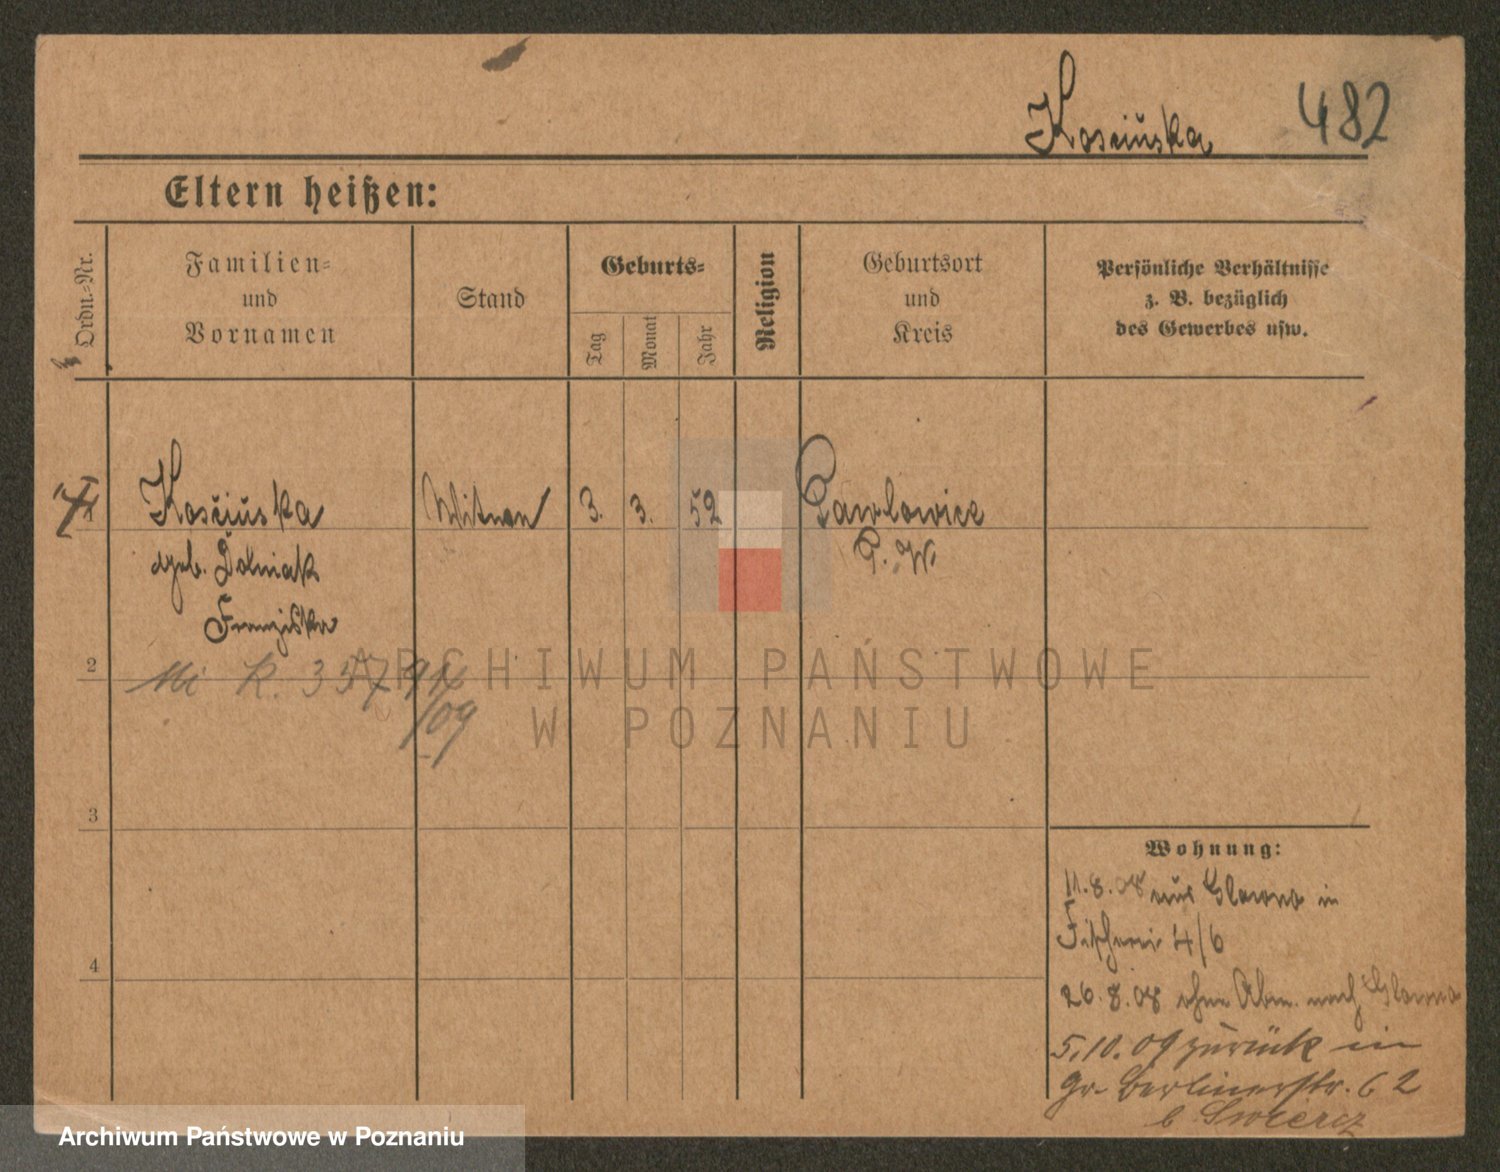 Kosciuska 482
Eltern heißen:
Ordn.-Nr.
Familien-
und
Vornamen
Stand
Geburts-
Tag
Monat
Jahr
Religion
Geburtsort
und
Kreis
Persönliche Verhältnisse
z. B. bezüglich
des Gewerbes usw.
1 Kosciuska Witwen 3. 3. 52 Pawlowice
geb. Dolniak P. W.
Franziska
2
R. 357
/09
3
4
Wohnung:
11.8.08 aus Glowno in
Fischerei 4/6
26.8.08 ohne Abm. nach Glowno
5.10.09 zurück in
Gr. Berlinerstr. 62
b.
ARCHIWUM PAŃSTWOWE
W POZNANIU
Archiwum Państwowe w Poznaniu